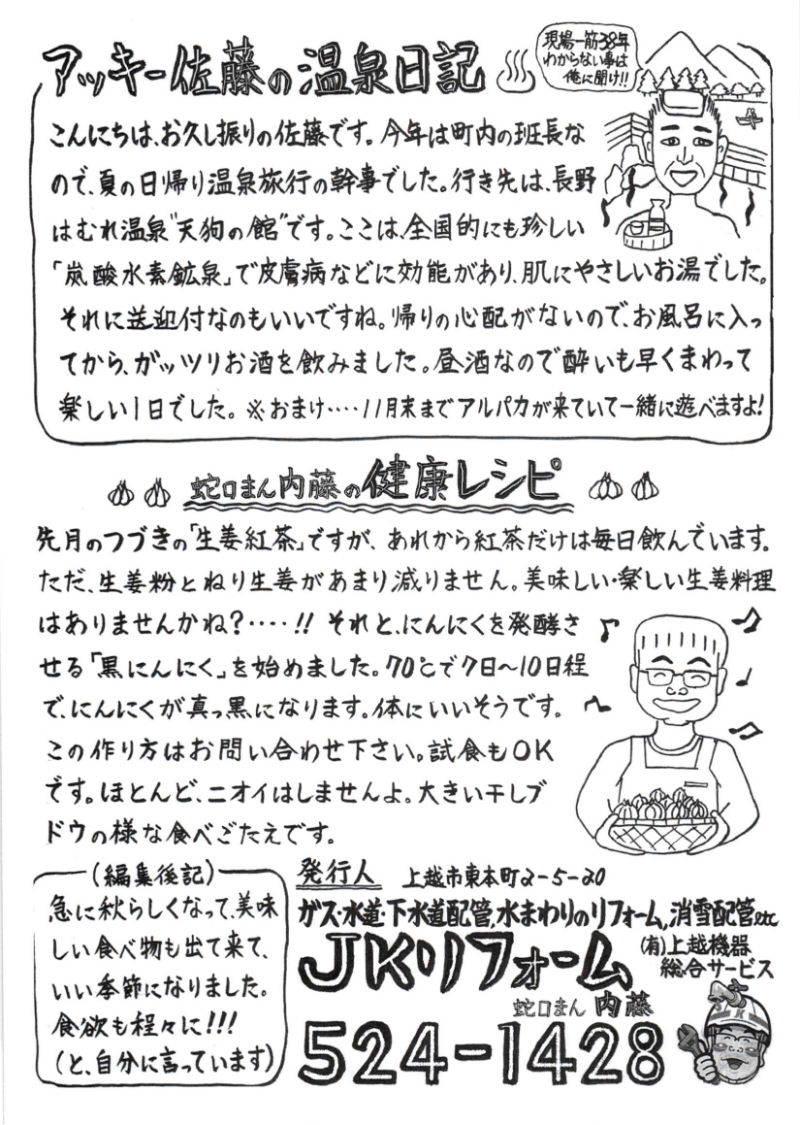 アッキー佐藤の温泉日記
現場一筋38年
わからない事は
俺に聞け!!
こんにちは、お久し振りの佐藤です。今年は町内の班長な
ので、夏の日帰り温泉旅行の幹事でした。行き先は、長野
はむれ温泉"天狗の館"です。ここは、全国的にも珍しい
「炭酸水素鉱泉」で皮膚病などに効能があり、肌にやさしいお湯でした。
それに送迎付なのもいいですね。帰りの心配がないので、お風呂に入っ
てから、ガッツリお酒を飲みました。昼酒なので酔いも早くまわって
楽しい1日でした。※おまけ‥‥11月末までアルパカが来ていて一緒に遊べますよ!
蛇口まん内藤の健康レシピ
先月のつづきの「生姜紅茶」ですが、あれから紅茶だけは毎日飲んでいます。
ただ、生姜粉とねり生姜があまり減りません。美味しい・楽しい生姜料理
はありませんかね?‥‥!! それと、にんにくを発酵さ
せる「黒にんにく」を始めました。70℃で7日〜10日程
で、にんにくが真っ黒になります。体にいいそうです。
この作り方はお問い合わせ下さい。試食もOK
です。ほとんど、ニオイはしませんよ。大きい干しブ
ドウの様な食べごたえです。
(編集後記)
急に秋らしくなって、美味
しい食べ物も出て来て、
いい季節になりました。
食欲も程々に!!!
(と、自分に言っています)
発行人 上越市東本町2-5-20
ガス・水道・下水道配管,水まわりのリフォーム,消雪配管etc
JKリフォーム
(有)上越機器
総合サービス
蛇口まん 内藤
524-1428